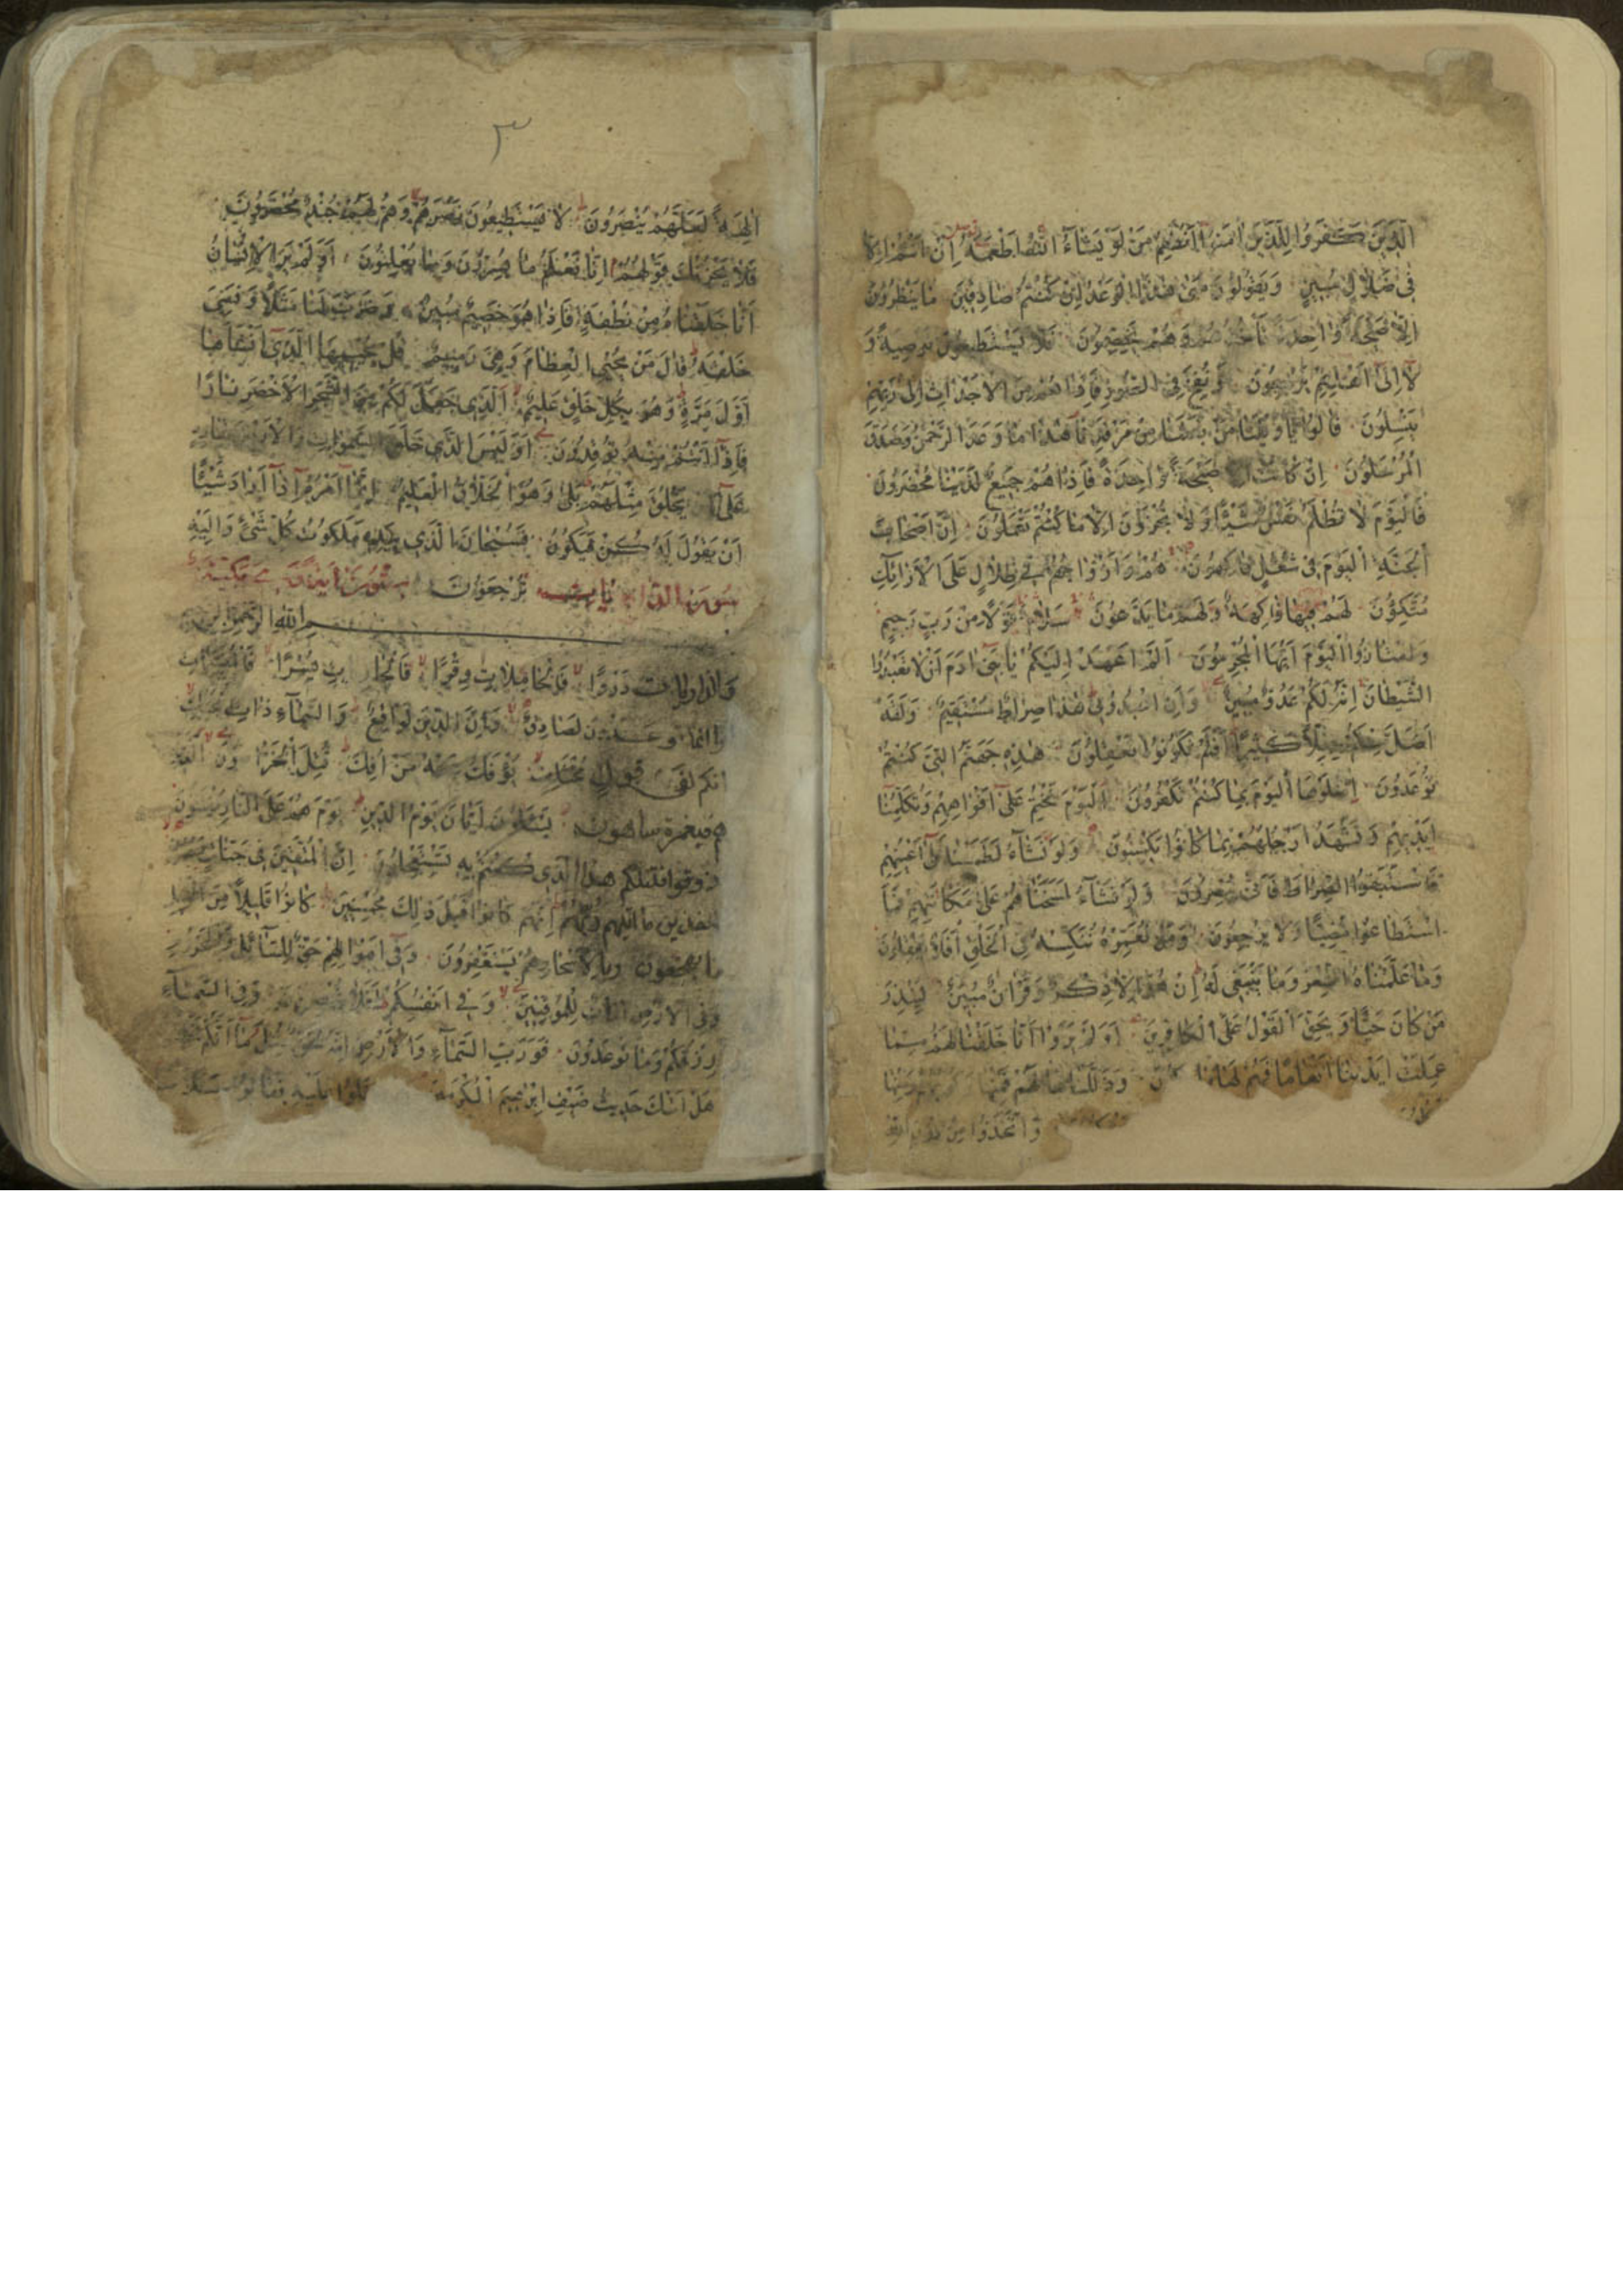 الَّذِينَ كَفَرُوا لِلَّذِينَ اٰمَنُوا اَنُطْعِمُ مَنْ لَوْ يَشَاءُ اللّٰهُ اَطْعَمَهُ اِنْ اَنْتُمْ اِلَّا
فِي ضَلَالٍ مُبِينٍ وَيَقُولُونَ مَتٰى هٰذَا الْوَعْدُ اِنْ كُنْتُمْ صَادِقِينَ مَا يَنْظُرُونَ
اِلَّا صَيْحَةً وَاحِدَةً تَأْخُذُهُمْ وَهُمْ يَخِصِّمُونَ فَلَا يَسْتَطِيعُونَ تَوْصِيَةً وَ
لَا اِلٰى اَهْلِهِمْ يَرْجِعُونَ وَنُفِخَ فِي الصُّورِ فَاِذَا هُمْ مِنَ الْاَجْدَاثِ اِلٰى رَبِّهِمْ
يَنْسِلُونَ قَالُوا يَا وَيْلَنَا مَنْ بَعَثَنَا مِنْ مَرْقَدِنَا هٰذَا مَا وَعَدَ الرَّحْمٰنُ وَصَدَقَ
الْمُرْسَلُونَ اِنْ كَانَتْ صَيْحَةً وَاحِدَةً فَاِذَا هُمْ جَمِيعٌ لَدَيْنَا مُحْضَرُونَ
فَالْيَوْمَ لَا تُظْلَمُ نَفْسٌ شَيْئًا وَلَا تُجْزَوْنَ اِلَّا مَا كُنْتُمْ تَعْمَلُونَ اِنَّ اَصْحَابَ
الْجَنَّةِ الْيَوْمَ فِي شُغُلٍ فَاكِهُونَ هُمْ وَاَزْوَاجُهُمْ فِي ظِلَالٍ عَلَى الْاَرَائِكِ
مُتَّكِؤُنَ لَهُمْ فِيهَا فَاكِهَةٌ وَلَهُمْ مَا يَدَّعُونَ سَلَامٌ قَوْلًا مِنْ رَبٍّ رَحِيمٍ
وَامْتَازُوا الْيَوْمَ اَيُّهَا الْمُجْرِمُونَ اَلَمْ اَعْهَدْ اِلَيْكُمْ يَا بَنِي اٰدَمَ اَنْ لَا تَعْبُدُوا
الشَّيْطَانَ اِنَّهُ لَكُمْ عَدُوٌّ مُبِينٌ وَاَنِ اعْبُدُونِي هٰذَا صِرَاطٌ مُسْتَقِيمٌ وَلَقَدْ
اَضَلَّ مِنْكُمْ جِبِلًّا كَثِيرًا اَفَلَمْ تَكُونُوا تَعْقِلُونَ هٰذِهِ جَهَنَّمُ الَّتِي كُنْتُمْ
تُوعَدُونَ اِصْلَوْهَا الْيَوْمَ بِمَا كُنْتُمْ تَكْفُرُونَ اَلْيَوْمَ نَخْتِمُ عَلٰى اَفْوَاهِهِمْ وَتُكَلِّمُنَا
اَيْدِيهِمْ وَتَشْهَدُ اَرْجُلُهُمْ بِمَا كَانُوا يَكْسِبُونَ وَلَوْ نَشَاءُ لَطَمَسْنَا عَلٰى اَعْيُنِهِمْ
فَاسْتَبَقُوا الصِّرَاطَ فَاَنّٰى يُبْصِرُونَ وَلَوْ نَشَاءُ لَمَسَخْنَاهُمْ عَلٰى مَكَانَتِهِمْ فَمَا
اسْتَطَاعُوا مُضِيًّا وَلَا يَرْجِعُونَ وَمَنْ نُعَمِّرْهُ نُنَكِّسْهُ فِي الْخَلْقِ اَفَلَا يَعْقِلُونَ
وَمَا عَلَّمْنَاهُ الشِّعْرَ وَمَا يَنْبَغِي لَهُ اِنْ هُوَ اِلَّا ذِكْرٌ وَقُرْاٰنٌ مُبِينٌ لِيُنْذِرَ
مَنْ كَانَ حَيًّا وَيَحِقَّ الْقَوْلُ عَلَى الْكَافِرِينَ اَوَلَمْ يَرَوْا اَنَّا خَلَقْنَا لَهُمْ مِمَّا
عَمِلَتْ اَيْدِينَا اَنْعَامًا فَهُمْ لَهَا وَذَلَّلْنَاهَا لَهُمْ فَمِنْهَا
وَاتَّخَذُوا مِنْ دُونِ اللّٰهِ
٣
اٰلِهَةً لَعَلَّهُمْ يُنْصَرُونَ لَا يَسْتَطِيعُونَ نَصْرَهُمْ وَهُمْ لَهُمْ جُنْدٌ مُحْضَرُونَ
فَلَا يَحْزُنْكَ قَوْلُهُمْ اِنَّا نَعْلَمُ مَا يُسِرُّونَ وَمَا يُعْلِنُونَ اَوَلَمْ يَرَ الْاِنْسَانُ
اَنَّا خَلَقْنَاهُ مِنْ نُطْفَةٍ فَاِذَا هُوَ خَصِيمٌ مُبِينٌ وَضَرَبَ لَنَا مَثَلًا وَنَسِيَ
خَلْقَهُ قَالَ مَنْ يُحْيِي الْعِظَامَ وَهِيَ رَمِيمٌ قُلْ يُحْيِيهَا الَّذِي اَنْشَأَهَا
اَوَّلَ مَرَّةٍ وَهُوَ بِكُلِّ خَلْقٍ عَلِيمٌ اَلَّذِي جَعَلَ لَكُمْ مِنَ الشَّجَرِ الْاَخْضَرِ نَارًا
فَاِذَا اَنْتُمْ مِنْهُ تُوقِدُونَ اَوَلَيْسَ الَّذِي خَلَقَ السَّمٰوَاتِ وَالْاَرْضَ بِقَادِرٍ
عَلٰى يَخْلُقَ مِثْلَهُمْ بَلٰى وَهُوَ الْخَلَّاقُ الْعَلِيمُ اِنَّمَا اَمْرُهُ اِذَا اَرَادَ شَيْئًا
اَنْ يَقُولَ لَهُ كُنْ فَيَكُونُ فَسُبْحَانَ الَّذِي بِيَدِهِ مَلَكُوتُ كُلِّ شَيْءٍ وَاِلَيْهِ
تُرْجَعُونَ
بسم اللّٰه الرحمن
وَالذَّارِيَاتِ ذَرْوًا فَالْحَامِلَاتِ وِقْرًا يُسْرًا
اِنَّمَا تُوعَدُونَ لَصَادِقٌ وَاِنَّ الدِّينَ لَوَاقِعٌ وَالسَّمَاءِ ذَاتِ
اِنَّكُمْ لَفِي قَوْلٍ مُخْتَلِفٍ يُؤْفَكُ عَنْهُ مَنْ اُفِكَ قُتِلَ الْخَرَّاصُونَ
هُمْ فِي غَمْرَةٍ سَاهُونَ يَسْئَلُونَ اَيَّانَ يَوْمُ الدِّينِ يَوْمَ هُمْ عَلَى النَّارِ يُفْتَنُونَ
ذُوقُوا فِتْنَتَكُمْ هٰذَا الَّذِي كُنْتُمْ بِهِ تَسْتَعْجِلُونَ اِنَّ الْمُتَّقِينَ فِي جَنَّاتٍ
اٰخِذِينَ مَا اٰتٰيهُمْ رَبُّهُمْ اِنَّهُمْ كَانُوا قَبْلَ ذٰلِكَ مُحْسِنِينَ كَانُوا قَلِيلًا مِنَ الَّيْلِ
مَا يَهْجَعُونَ وَبِالْاَسْحَارِ هُمْ يَسْتَغْفِرُونَ وَفِي اَمْوَالِهِمْ حَقٌّ لِلسَّائِلِ وَالْمَحْرُومِ
وَفِي الْاَرْضِ اٰيَاتٌ لِلْمُوقِنِينَ وَفِي اَنْفُسِكُمْ اَفَلَا وَفِي السَّمَاءِ
رِزْقُكُمْ وَمَا تُوعَدُونَ فَوَرَبِّ السَّمَاءِ وَالْاَرْضِ اِنَّهُ لَحَقٌّ مِثْلَ مَا اَنَّكُمْ
هَلْ اَتٰيكَ حَدِيثُ ضَيْفِ اِبْرٰهِيمَ الْمُكْرَمِينَ دَخَلُوا عَلَيْهِ فَقَالُوا